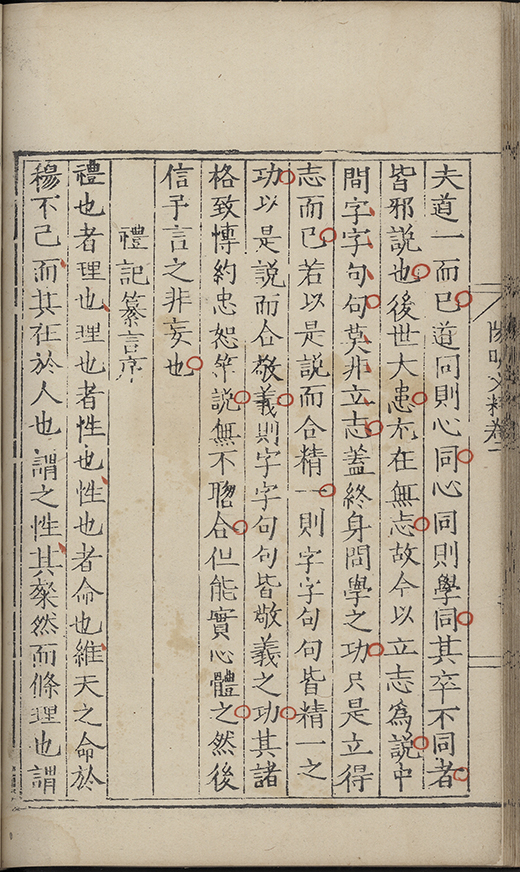 夫道一而已道同則心同心同則學同其卒不同者
皆邪說也後世大患尤在無志故今以立志爲說中
間字字句句莫非立志蓋終身問學之功只是立得
志而已若以是說而合精一則字字句句皆精一之
功以是說而合敬義則字字句句皆敬義之功其諸
格致愽約忠恕䓁說無不脗合但能實心體之然後
信予言之非妄也
禮記纂言序
禮也者理也理也者性也性也者命也維天之命於
穆不已而其在於人也謂之性其粲然而條理也謂